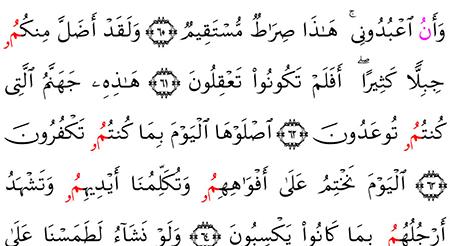 وَأَنُ اُعْبُدُونِى ۚ هَٰذَا صِرَٰطٌ مُّسْتَقِيمٌ ٦٠ وَلَقَدْ أَضَلَّ مِنكُمُۥ
جِبِلًّا كَثِيرًا ۖ أَفَلَمْ تَكُونُوا۟ تَعْقِلُونَ ٦١ هَٰذِهِۦ جَهَنَّمُ ٱلَّتِى
كُنتُمُۥ تُوعَدُونَ ٦٢ ٱصْلَوْهَا ٱلْيَوْمَ بِمَا كُنتُمُۥ تَكْفُرُونَ
٦٣ ٱلْيَوْمَ نَخْتِمُ عَلَىٰ أَفْوَٰهِهِمُۥ وَتُكَلِّمُنَا أَيْدِيهِمُۥ وَتَشْهَدُ
أَرْجُلُهُمُۥ بِمَا كَانُوا۟ يَكْسِبُونَ ٦٤ وَلَوْ نَشَآءُ لَطَمَسْنَا عَلَىٰٓ